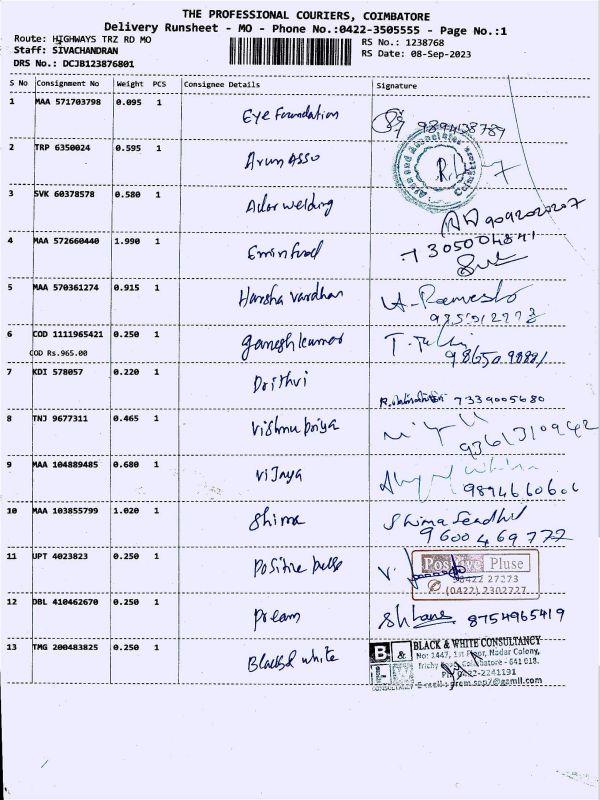 THE PROFESSIONAL COURIERS, COIMBATORE
Delivery Runsheet - MO - Phone No.:0422-3505555 - Page No.:1
Route: HIGHWAYS TRZ RD MO
RS No.: 1238768
Staff: SIVACHANDRAN
RS Date: 08-Sep-2023
DRS No.: DCJB123876801
S No Consignment No Weight PCS Consignee Details Signature
1 MAA 571703798 0.095 1 Eye Foundation
2 TRP 6350024 0.595 1 Arun Asso
3 SVK 60378578 0.580 1 Ador welding 9092020207
4 MAA 572660440 1.990 1 7305004841
5 MAA 570361274 0.915 1 Harsha vardhan
6 COD 1111965421 0.250 1 ganesh kumar
COD Rs.965.00
7 KDI 578057 0.220 1 Prithvi 7339005680
8 TNJ 9677311 0.465 1 Vishnu priya 9361310942
9 MAA 104889485 0.680 1 Vijaya
9894660606
10 MAA 103855799 1.020 1 Shima Shima
9600469772
11 UPT 4023823 0.250 1 Positive pulse Positive Pluse
(0422) 2302727
12 DBL 410462670 0.250 1 Dream 8754965419
13 TMG 200483825 0.250 1 Black & white B & W BLACK & WHITE CONSULTANCY
No: 1447, 1st Floor, Nadar Colony,
Trichy Road, Coimbatore - 641 018.
Ph: 0422-2241191
CONSULTANCY E-mail: prem.sap7@gmail.com